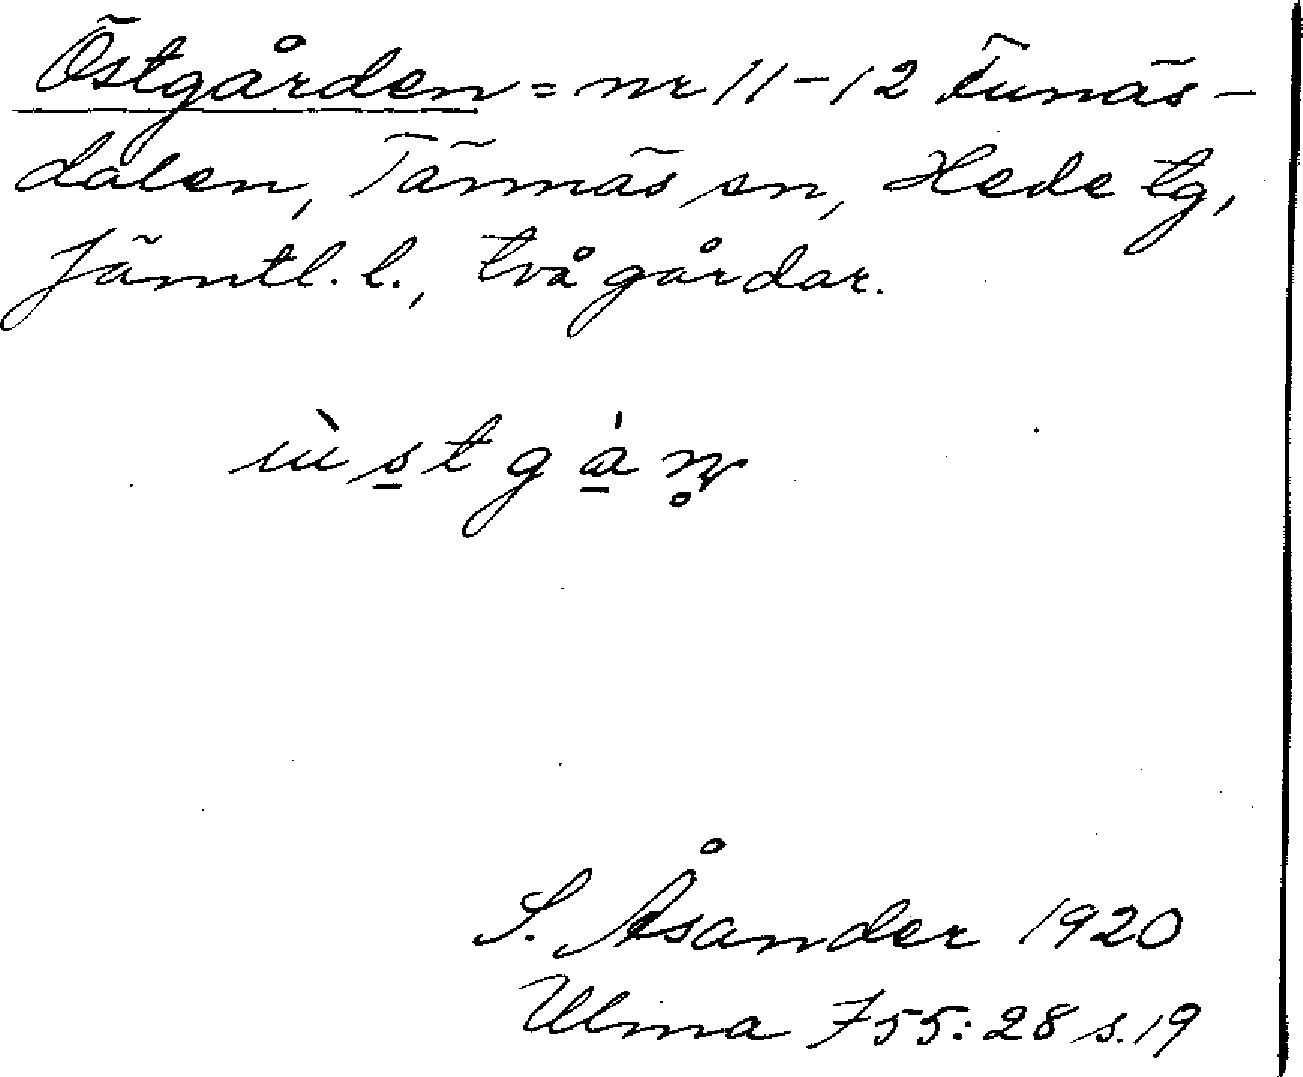 Östgården = nr 11-12 Funäs-
dalen, Tännäs sn, Hede tg,
Jämtl. l., två gårdar.
S. Åsander 1920
Ulma 755:28 s.19